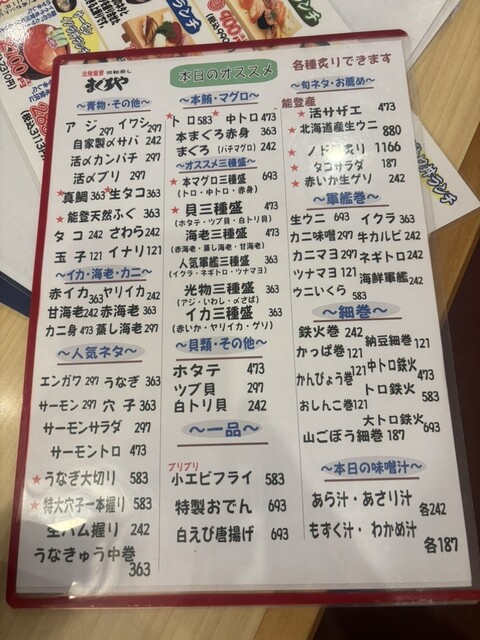 北陸能登 回転寿し
まぐろや
本日のオススメ
各種炙りできます
～青物・その他～
アジ 297 イワシ 297
自家製〆サバ 242
活〆カンパチ 297
活〆ブリ 297
★真鯛 363 ★生タコ 363
★能登天然ふぐ 363
タコ 242 さわら 242
玉子 121 イナリ 121
～イカ・海老・カニ～
赤イカ 363 ヤリイカ 242
甘海老 242 赤海老 363
カニ身 473 蒸し海老 297
～人気ネタ～
エンガワ 297 うなぎ 363
サーモン 297 穴子 363
サーモンサラダ 297
サーモントロ 473
★うなぎ大切り 583
★特大穴子一本握り 583
生ハム握り 242
うなきゅう中巻 363
～本鮪・マグロ～
★トロ 583 ★中トロ 473
本まぐろ赤身 363
まぐろ (バチマグロ) 242
～オススメ三種盛～
★本マグロ三種盛 693
(トロ・中トロ・赤身)
★貝三種盛 473
(ホタテ・ツブ貝・白トリ貝)
海老三種盛 473
(赤海老・蒸し海老・甘海老)
人気軍艦三種盛 363
(イクラ・ネギトロ・ツナマヨ)
光物三種盛 363
(アジ・いわし・〆さば)
イカ三種盛 363
(赤いか・ヤリイカ・ゲソ)
～貝類・その他～
ホタテ 473
ツブ貝 297
白トリ貝 242
～一品～
プリプリ
小エビフライ 583
特製おでん 693
白えび唐揚げ 693
～旬ネタ・お薦め～
能登産
★活サザエ 473
★北海道産生ウニ 880
★ノドグロ炙り 1166
★タコサラダ 187
★赤いか生ゲソ 242
～軍艦巻～
生ウニ 693 イクラ 363
カニ味噌 297 牛カルビ 242
カニマヨ 297 ネギトロ 242
ツナマヨ 121 海鮮軍艦 242
ウニいくら 583
～細巻～
鉄火巻 242 納豆細巻 121
かっぱ巻 121
かんぴょう巻 121 中トロ鉄火 473
おしんこ巻 121 トロ鉄火 583
大トロ鉄火 693
山ごぼう細巻 187
～本日の味噌汁～
あら汁・あさり汁 各242
もずく汁・わかめ汁 各187